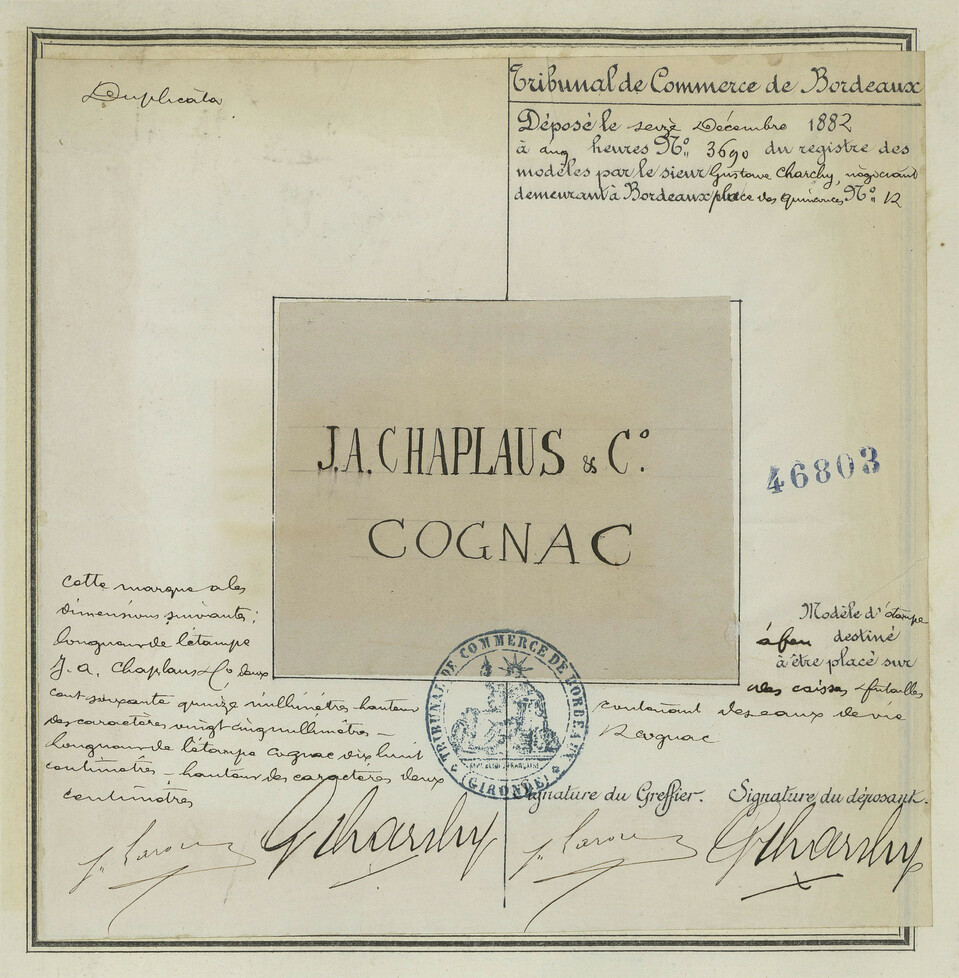 Duplicata
Tribunal de Commerce de Bordeaux
Déposé le seize Décembre 1882
à heures No. 3690 du registre des
modèles par le sieur Gustave Charchy, négociant
demeurant à Bordeaux place des quinconces No. 12
J.A. CHAPLAUS & Co.
COGNAC
46803
cette marque a les
dimensions suivantes;
longueur de l'étampe
J. A. Chaplaus & Co deux
cent soixante quinze millimètres hauteur
des caractères vingt cinq millimètres –
longueur de l'étampe Cognac dix huit
centimètres – hauteur des caractères deux
centimètres
Modèle d'étampe
à feu destiné
à être placé sur
des caisses & futailles
contenant des eaux de vie
Cognac
TRIBUNAL DE COMMERCE DE BORDEAUX
RÉPUBLIQUE FRANÇAISE
(GIRONDE)
Signature du Greffier. Signature du déposant.
GCharchy GCharchy